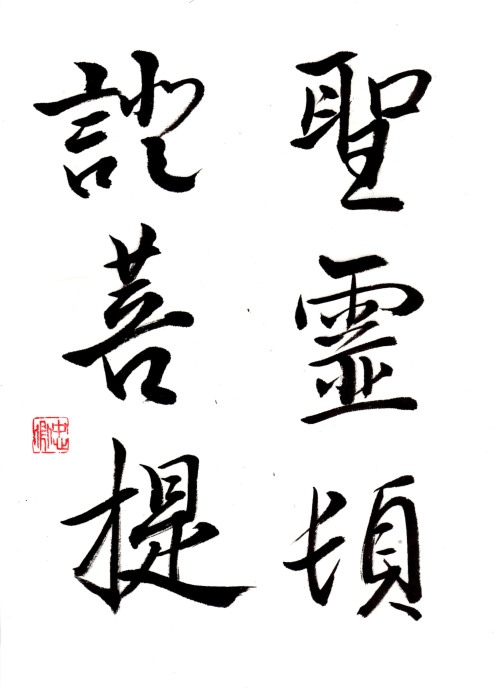 聖靈頓
證菩提